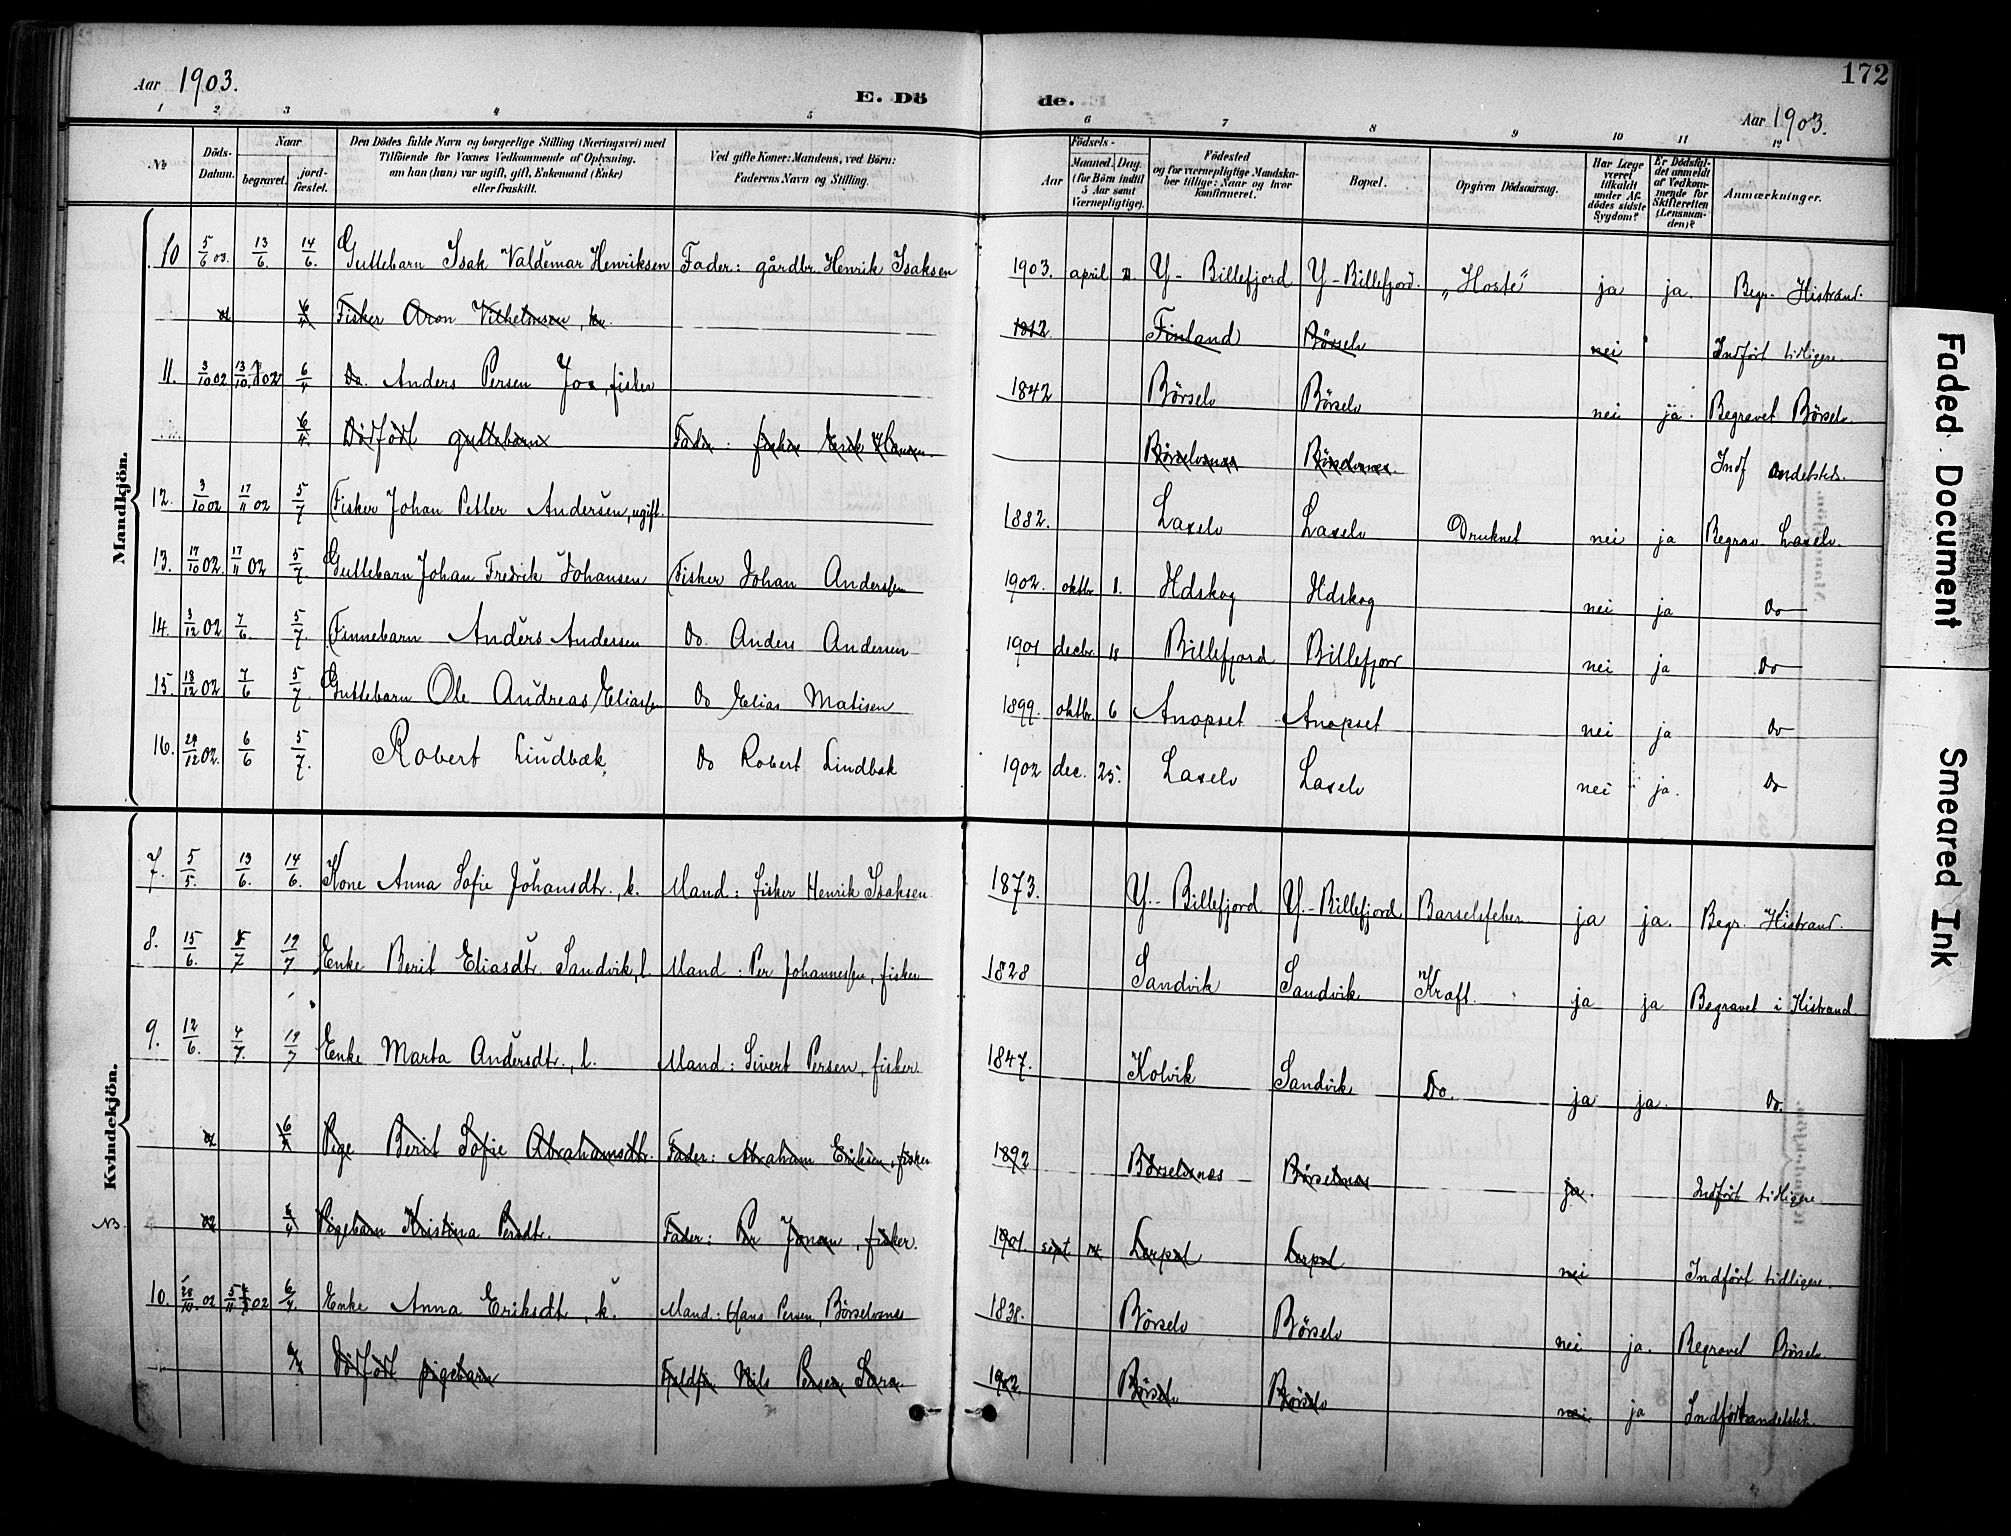 Aar 1903. E. Dö de. Aar 1903. 172
1 2 3 4 5 6 7 8 9 10 11 12
No Döds-Datum. Naar begravet. jord-fæstet. Den Dödes fulde Navn og borgerlige Stilling (Næringsvei) med Tilföiende for Voxnes Vedkommende af Oplysning, om han (hun) var ugift, gift, Enkemand (Enke) eller fraskilt. Ved gifte Koner: Mandens, ved Börn: Faderens Navn og Stilling. Födsels- Aar Maaned. Dag. (for Börn indtil 5 Aar samt Værnepligtige). Födested og for værnepligtige Mandskaber tillige: Naar og hvor konfirmeret. Bopæl. Opgiven Dödsaarsag. Har Læge været tilkaldt under Afdödes sidste Sygdom? Er Dödsfaldet anmeldt af Vedkommende for Skifteretten (Lensmanden)? Anmærkninger.
Mandkjön.
10 5/6 03. 13/6. 14/6. Guttebarn Isak Valdemar Henriksen Fader: gårdbr. Henrik Isaksen 1903. april Y-Billefjord Y-Billefjord. "Hoste" ja ja. Begr. Kistrand.
02 6/4 Fisker Aron Vilhelmsen, k. 1812 Finland Börselv nei Indført tidligere
11. 3/10 02 13/10 02 6/4 Do. Anders Persen Joa, fisker 1842 Börselv Börselv nei ja. Begravet Börselv.
6/4. Dødfødt guttebarn Fader: fisker Erik Hansen. Börselvnes Börselvnes Indf andetsteds.
12. 3/10 02 17/11 02 5/7 Fisker Johan Petter Andersen, ugift. 1882. Laxelv Laxelv Druknet nei ja Begrav Laxelv.
13. 17/10 02. 17/11 02 5/7. Guttebarn Johan Fredrik Johansen Fisker Johan Anderssen 1902. oktbr 8. Hdskog Hdskog nei ja Do
14. 3/12 02 7/6. 5/7. Finnebarn Anders Andersen Do. Anders Andersen 1901 decbr 18 Billefjord Billefjor nei ja Do
15. 18/12 02 7/6 5/7. Guttebarn Ole Andreas Eliassen Do Elias Matisen 1899. oktbr 6 Anopset Anopset nei ja Do
16. 29/12 02. 6/6 5/7. Robert Lindbæk Do Robert Lindbæk 1902 dec. 25. Laxelv Laxelv nei ja. Do
Kvindekjön.
7. 5/5. 13/6. 14/6. Kone Anna Sofie Johansdtr., k. Mand: fisker Henrik Isaksen. 1873. Y.-Billefjord Y.-Billefjord Barselsfeber ja ja. Begr. Kistrand.
8. 15/6. 8/7 19/7 Enke Berit Eliasdtr. Sandvik, l. Mand: Per Johannessen, fisker 1828 Sandvik Sandvik Kræft. ja ja Begravet i Kistrand.
9. 12/6. 4/7. 19/7 Enke Marta Andersdtr., l. Mand: Sivert Persen, fisker 1847. Kolvik Sandvik Do. ja ja. Do.
02 6/4 Pige Berit Sofie Abrahamsdtr. Fader: Abraham Eriksen, fisker 1892 Börselvnes Börselvnes ja. Indført tidligere.
NB. 02 6/4 Pigebarn Kristina Persdtr. Fader: Per Jonsen, fisker. 1901. sept 14 Lerpol Lerpol nei Indført tidligere.
10. 28/10. 02 5/11 02 6/4. Enke Anna Eriksdt, k. Mand: Hans Persen, Börselvsnes 1838. Börselv Börselv nei ja. Begravet Börselv.
6/4 Dødfødt pigebarn Fjeldfin Nils Persen Sara 1902. Börselv Börselv nei ja Indført andetsteds.
Faded Document
Smeared Ink